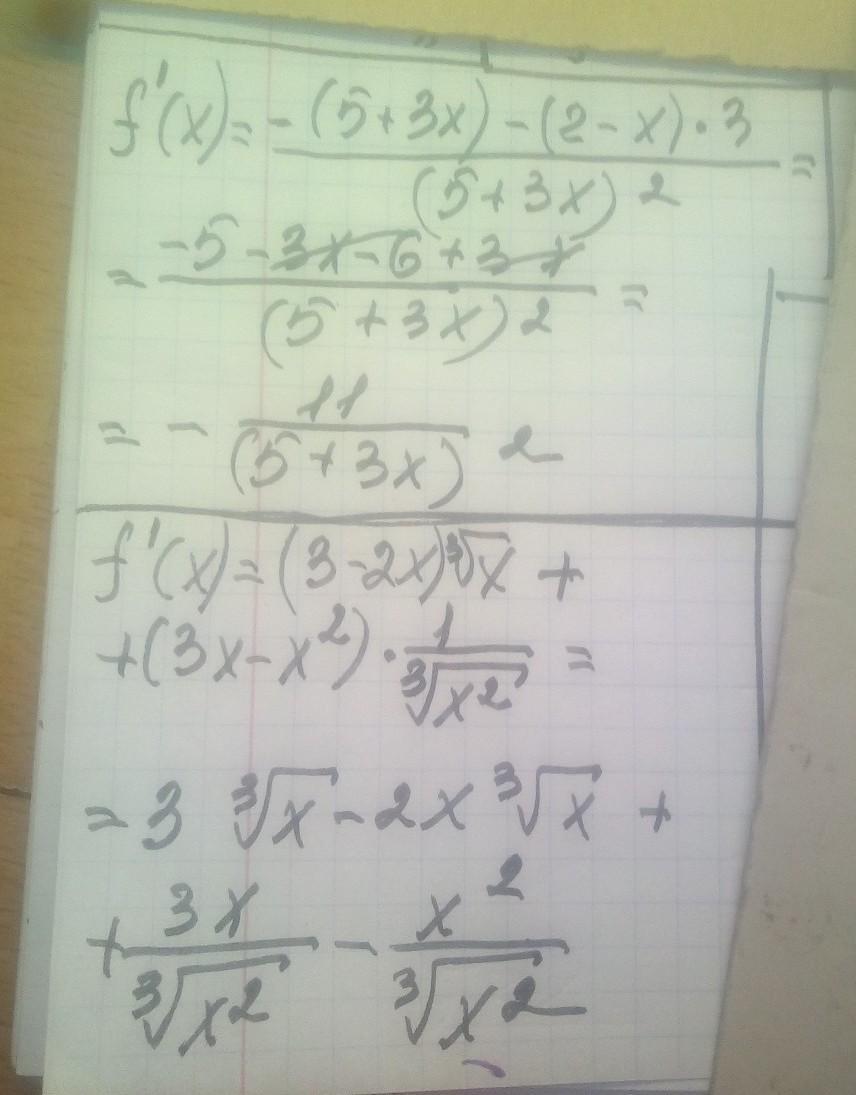 f'(x) = -(5+3x) - (2-x)·3 / (5+3x)2 =
= -5 - 3x - 6 + 3x / (5+3x)2 =
= - 11 / (5+3x) 2
f'(x) = (3-2x)∛x +
+(3x-x²)· 1/∛x2 =
= 3 ∛x - 2x ∛x +
+ 3x/∛x2 - x²/∛x2